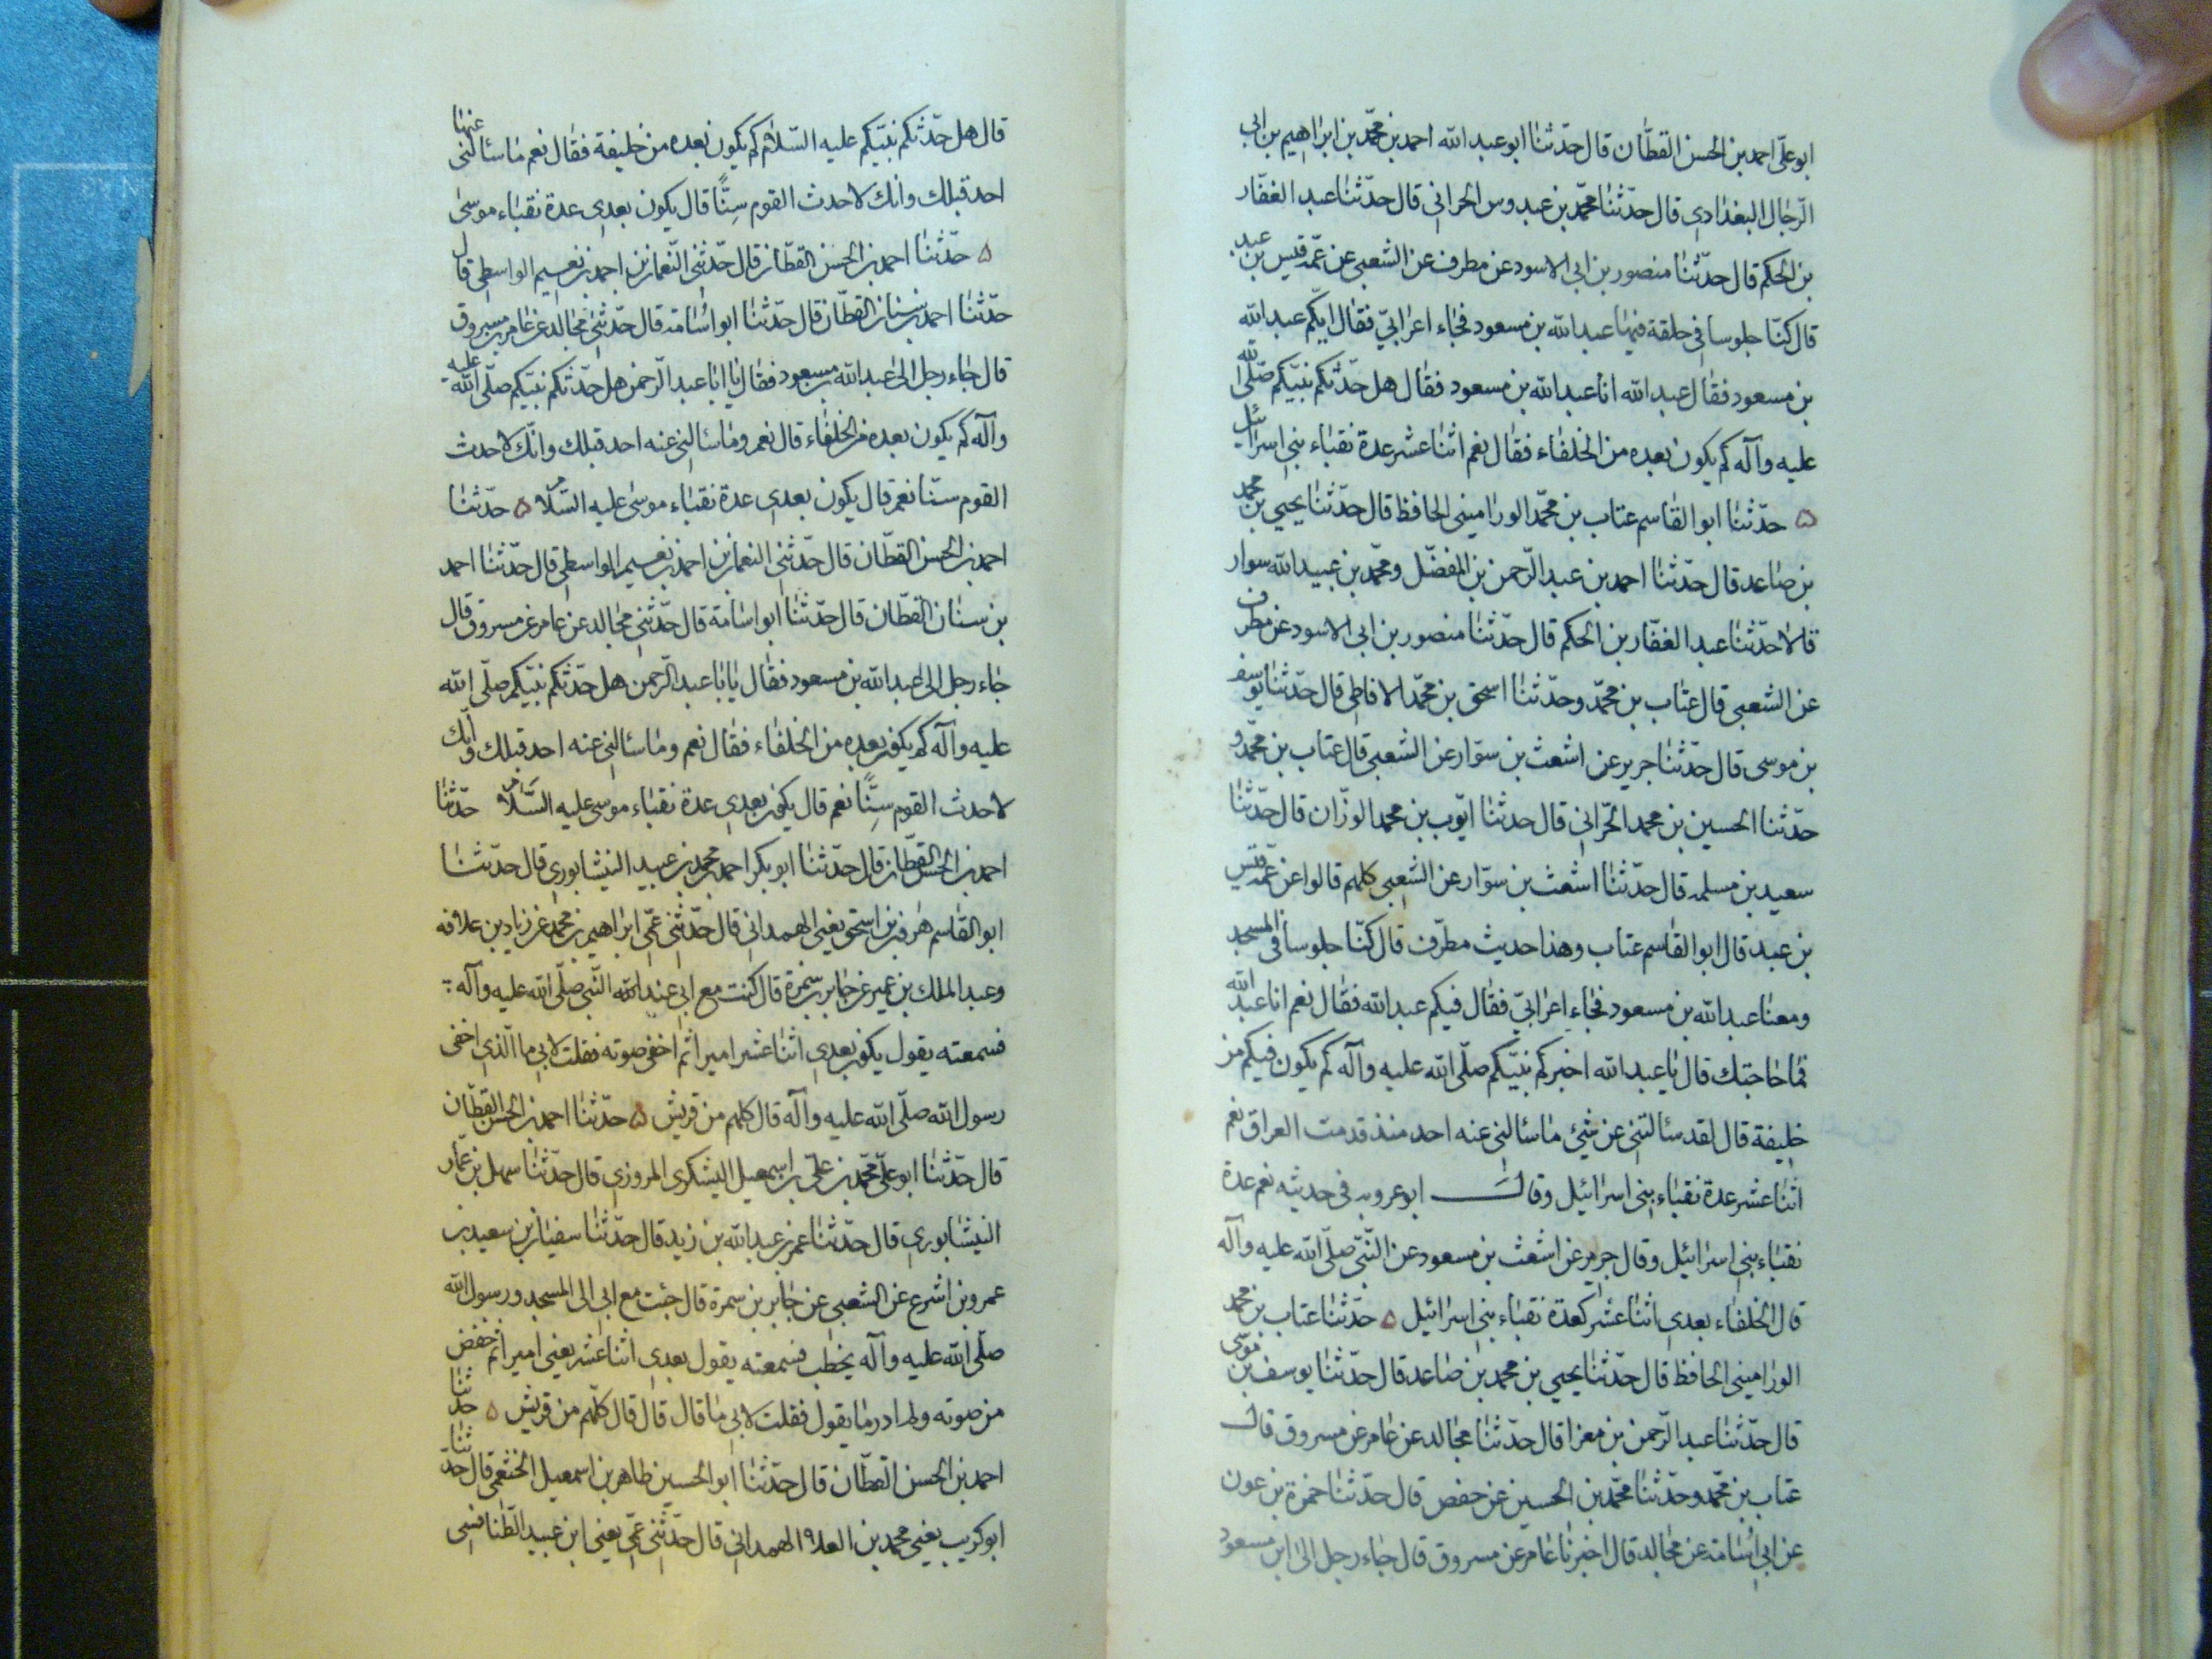 ابوعلّى احمد بن الحسن القطّان قال حدّثنا ابوعبد الله احمد بن محمّد بن ابراهيم بن ابى
الرّجال البغدادى قال حدّثنا محمّد بن عبدوس الحرانى قال حدّثنا عبد الغفّار
بن الحكم قال حدّثنا منصور بن ابى الاسود عن مطرف عن الشعبى عن عمّه قيس بن عبد
قال كنّا جلوسا فى حلقة فيها عبد الله بن مسعود فجاء اعرابىّ فقال ايّكم عبد الله
بن مسعود فقال عبد الله انا عبد الله بن مسعود فقال هل حدّثكم نبيّكم صلّى الله
عليه وآله كم يكون بعده من الخلفاء فقال نعم اثنا عشر عدة نقباء بنى اسرائيل
۵ حدّثنا ابو القاسم عتاب بن محمّد الورامينى الحافظ قال حدّثنا يحيى بن محمد
بن صاعد قال حدّثنا احمد بن عبد الرّحمن بن المفضّل ومحمّد بن عبيد الله سوار
قالا حدّثنا عبد الغفّار بن الحكم قال حدّثنا منصور بن ابى الاسود عن مطرف
عن الشعبى قال عتاب بن محمّد وحدّثنا اسحق بن محمّد الافاطى قال حدّثنا يوسف
بن موسى قال حدّثنا جرير عن اشعث بن سوّار عن الشعبى قال عتاب بن محمّد و
حدّثنا الحسين بن محمد الحّرانى قال حدثنا ايّوب بن محمد الوزّان قال حدّثنا
سعيد بن مسلمه قال حدّثنا اشعث بن سوّار عن الشعبى كلهم قالوا عن عمّه قيس
بن عبد قال ابو القاسم عتاب وهذا حديث مطرّف قال كنّا جلوسا فى المسجد
ومعنا عبد الله بن مسعود فجاء اعرابىّ فقال فيكم عبد الله فقال نعم انا عبد الله
فما حاجتك قال يا عبد الله اخبركم نبيّكم صلّى الله عليه وآله كم يكون فيكم من
خليفة قال لقد سئالتنى عن شىء ما سئالنى عنه احد منذ قدمت العراق نعم
اثنا عشر عدة نقباء بنى اسرائيل وقال ابوعروبه فى حديثه نعم عدة
نقباء بنى اسرائيل وقال جرير عن اشعث بن مسعود عن النّبّى صلّى الله عليه وآله
قال الخلفاء بعدى اثنا عشر كعدة نقباء بنى اسرائيل ۵ حدّثنا عتاب بن محمد
الورامينى الحافظ قال حدّثنا يحيى بن محمد بن صاعد قال حدّثنا يوسف بن موسى
قال حدّثنا عبد الرّحمن بن مغرا قال حدّثنا مجالد عن عامر عن مسروق قال
عتاب بن محمّد وحدّثنا محمّد بن الحسين عن حفص قال حدّثنا حمزة بن عون
عن ابى اسامة عن مجالد قال اخبرنا عامر عن مسروق قال جاء رجل الى ابن مسعود
قال هل حدّثكم نبيّكم عليه السّلام كم يكون بعده من خليفة فقال نعم ما سئالنى عنها
احد قبلك وانك لاحدث القوم سِنًّا قال يكون بعدى عدة نقباء موسى
۵ حدّثنا احمد بن الحسن القطّان قال حدّثنى النّعمان بن احمد بن نعيم الواسطى قال
حدّثنا احمد بن سنان القطّان قال حدّثنا ابو اسامة قال حدّثنى مجالد عن عامر بن مسروق
قال جاء رجل الى عبد الله بن مسعود فقال يا ابا عبد الرّحمن هل حدّثكم نبيّكم صلّى الله عليه
وآله كم يكون بعده من الخلفاء قال نعم وما سئالنى عنه احد قبلك وانّك لاحدث
القوم سنّا نعم قال يكون بعدى عدة نقباء موسى عليه السّلام ۵ حدّثنا
احمد بن الحسن القطّان قال حدّثنى النعمان بن احمد بن نعيم الواسطى قال حدّثنا احمد
بن سنان القطّان قال حدّثنا ابو اسامة قال حدّثنى مجالد عن عامر عن مسروق قال
جاء رجل الى عبد الله بن مسعود فقال يا با عبد الرّحمن هل حدّثكم نبيّكم صلّى الله
عليه وآله كم يكون بعده من الخلفاء فقال نعم وما سئالنى عنه احد قبلك وانّك
لاحدث القوم سِنًّا نعم قال يكون بعدى عدة نقباء موسى عليه السّلام ۵ حدّثنا
احمد بن الحسن القطّان قال حدّثنا ابوبكر احمد بن محمد بن عبيد النيشابورى قال حدّثنا
ابو القاسم هرون بن اسحق يعنى الهمدانى قال حدّثنى عمّى ابراهيم بن محمد عن زياد بن علاقه
وعبد الملك بن عمير عن جابر بن سمرة قال كنت مع ابى عند النّبى صلّى الله عليه وآله
فسمعته يقول يكون بعدى اثنا عشر اميرا ثم اخفى صوته فقلت لابى ما الّذى اخفى
رسول الله صلّى الله عليه وآله قال كلهم من قريش ۵ حدّثنا احمد بن الحسن القطّان
قال حدّثنا ابوعلّى محمّد بن علّى بن اسمعيل اليشكرى المروزى قال حدّثنا سهل بن عمّار
النيشابورى قال حدّثنا عمر بن عبد الله بن زيد قال حدّثنا سفيان بن سعيد بن
عمرو بن اشرع عن الشعبى عن جابر بن سمرة قال جئت مع ابى الى المسجد ورسول الله
صلّى الله عليه وآله يخطب فسمعته يقول بعدى اثنا عشر يعنى اميرا ثم خفض
من صوته ولم ادر ما يقول فقلت لابى ما قال قال قال كلّهم من قريش ۵ حدّثنا
احمد بن الحسن القطّان قال حدّثنا ابو الحسين طاهر بن اسمعيل الخثعمى قال حدّثنا
ابوكريب يعنى محمد بن العلا الهمدانى قال حدّثنى عمّى يعنى ابن عبيد الطّنافسى